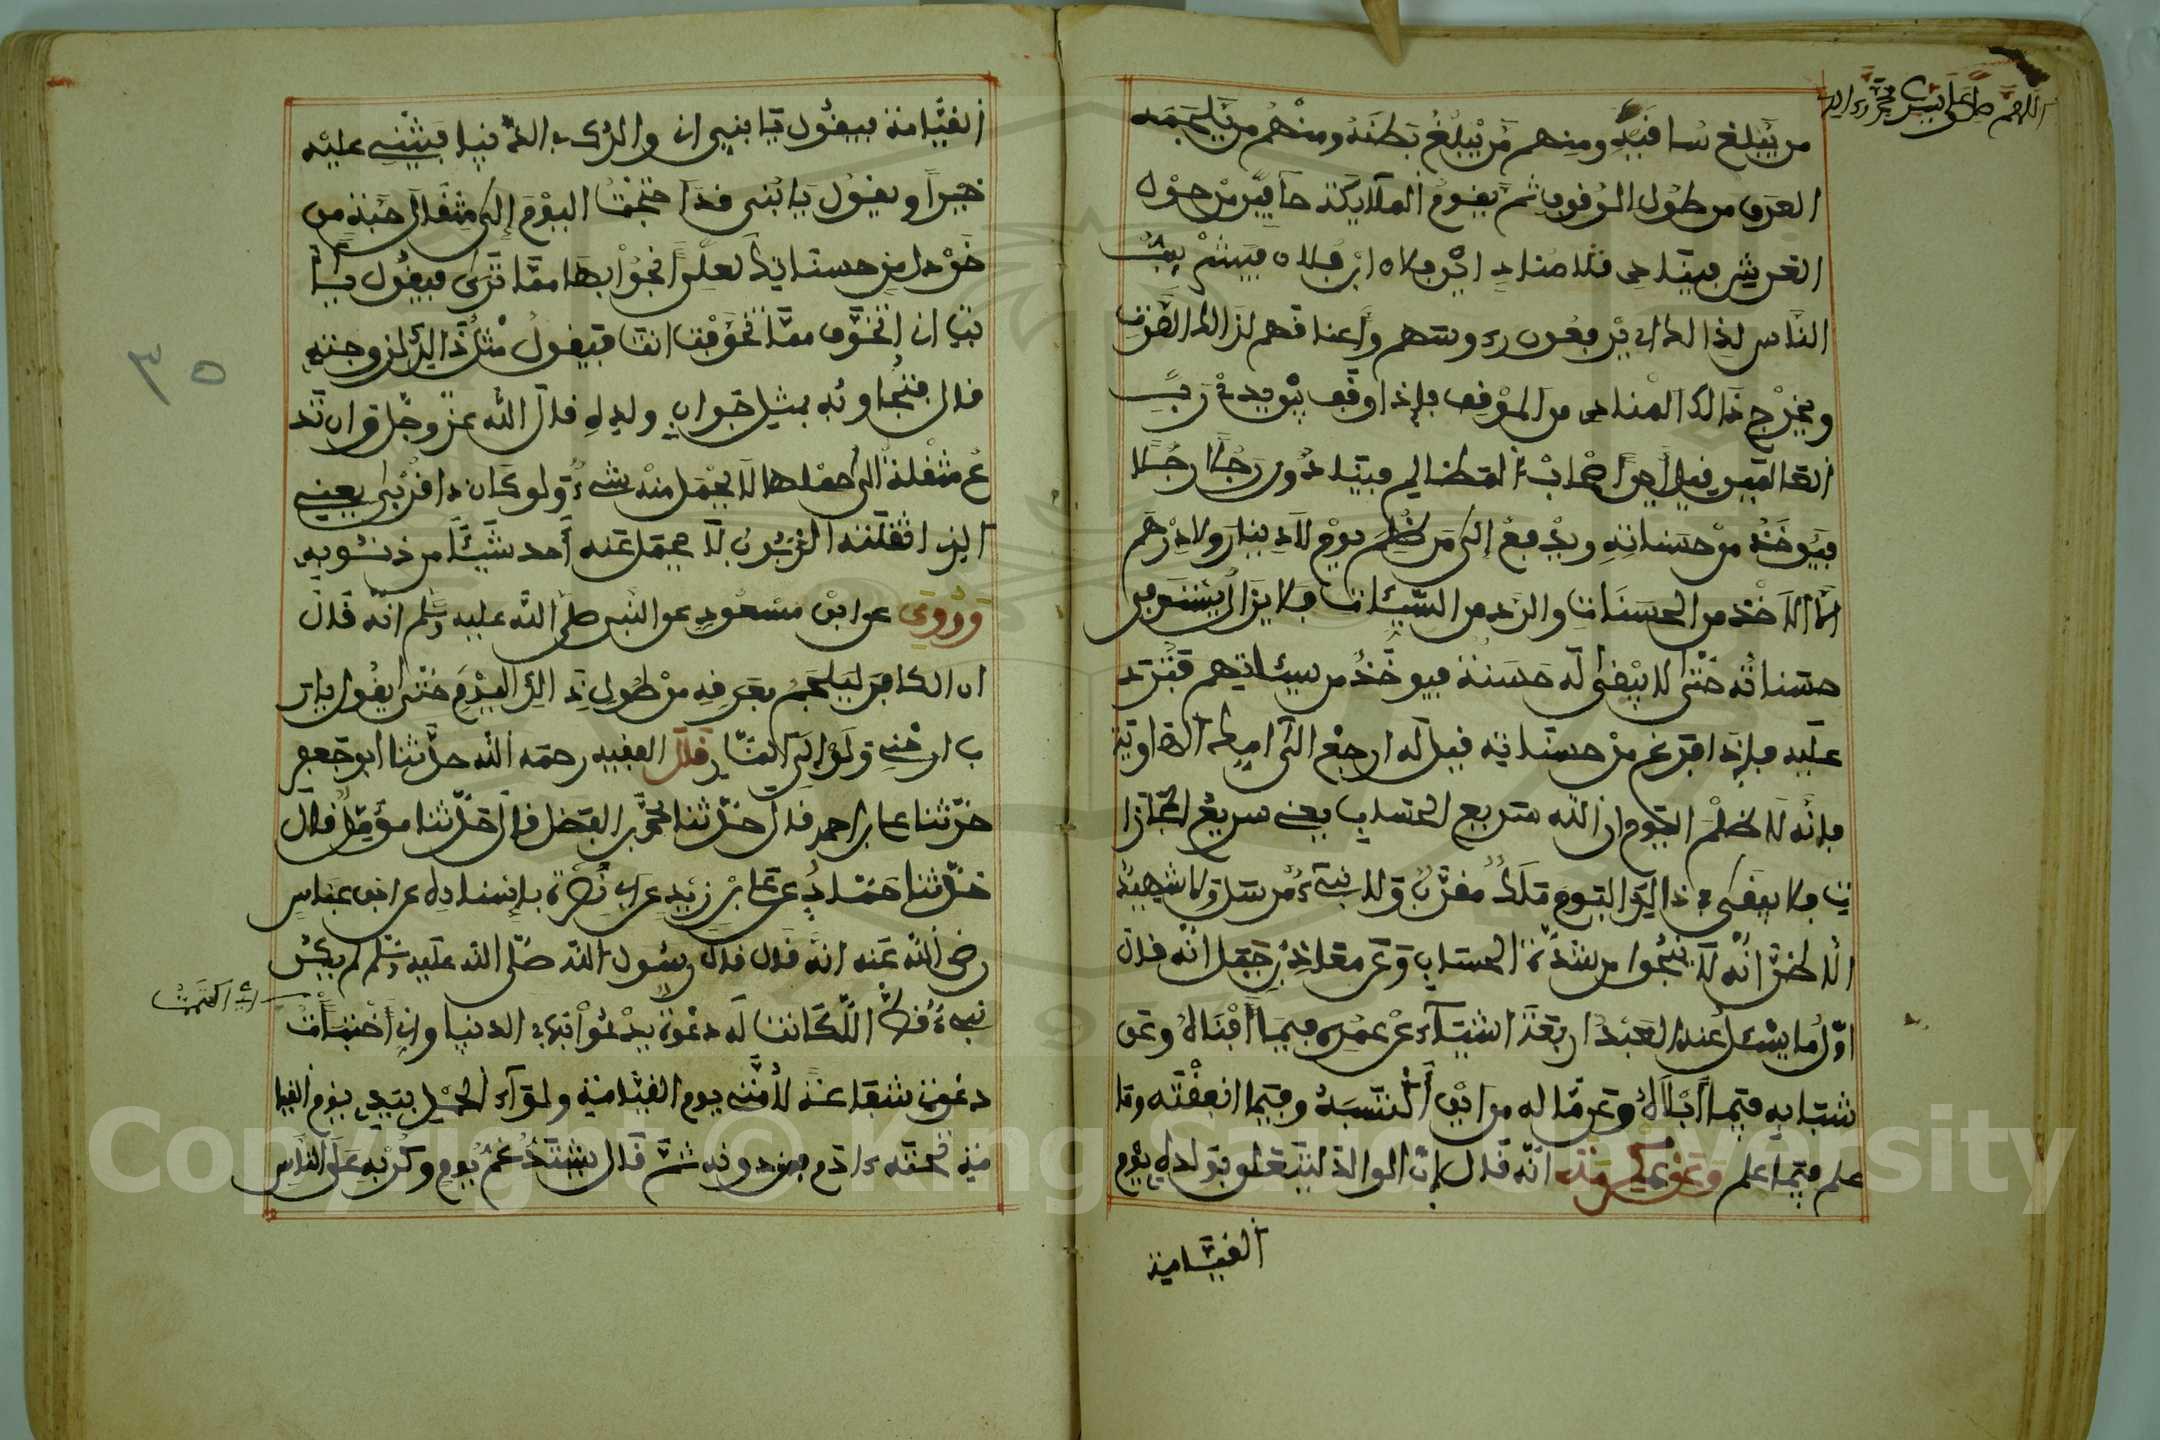 اللهم صل على سيدنا محمد وءاله
من يبلغ ساقيه ومنهم من يبلغ بطنه ومنهم من يلجمه
العرق من طول الوقوف ثم يقوم الملايكة حافين من حول
العرش فينادى مناد اين فلان ابن فلان فيشرئب
الناس لذالك يرفعون رءوسهم وأعناقهم لذالك الصوت
ويخرج ذالك المنادى من الموقف فإذا وقف بين يدي رب
العالمين قيل أين أصحاب المظالم فينادون رجلا رجلا
فيوخذ من حسناته ويدفع إلى من ظلم يوم لا دينار ولا درهم
الا الاخذ من الحسنات والرد من السيئات فلا يزال يستوفى من
حسناته حتى لا يبقى له حسنة فيوخذ من سيئاتهم فترد
عليه فإذا افرغ من حسناته قيل له ارجع الى امك الهاوية
فإنه لا ظلم اليوم ان الله سريع الحساب يعنى سريع المجازا
ت فلا يبقى في ذالك اليوم ملك مقرب ولا نبىء مرسل ولا شهيد
الا ظن انه لا ينجوا من شدة الحساب وعن معاذ بن جبل انه قال
اول ما يسئل عنه العبد اربعة اشياء عن عمره فيما أفناه وعن
شبابه فيما أبلاه وعن ماله من اين أكتسبه وفيما انفقته وما
علم فيما علم وعن عكرمة انه قال إن الوالد ليتعلق بولده يوم
القيامة
القيامة فيقول يا بني ان والدك في الدنيا فيثنى عليه
خيرا ويقول يا بنى قد احتجت اليوم إلى مثقال حبة من
خردل من حسناتك لعلى انجوا بها مما ترى فيقول يا أ
بت ان اتخوف مما تخوفت انت فيقول مثل ذالك لزوجته
قال فتجاوبه بمثل جواب ولده قال الله عز وجل وان تد
ع مثقلة الى حملها لا يحمل منه شىء ولو كان ذا قربى يعنى
الذى اثقلته الذنوب لا يحمل عنه أحد شيئا من ذنوبه
وروي عن ابن مسعود عن النبي صلى الله عليه وسلم انه قال
ان الكافر ليلجم بعرقه من طول ذالك اليوم حتى يقول يا ر
ب ارحنى ولو إلى النار قال الفقيه رحمه الله حدثنا ابو جعفر
حدثنا علي بن احمد قال حدثنا محمد بن الفضل قال حدثنا مؤمل قال
حدثنا حماد عن علي بن زيد عن ابي نضرة بإسناده عن ابن عباس
رضى الله عنه انه قال قال رسول الله صلى الله عليه وسلم لم يكن
نبىء قط الا كانت له دعوة يدعوا بها في الدنيا وإنى أختبأت
دعوتى شفاعة لأمتى يوم القيامة ولواء الحمد بيدي يوم القيا
مة تحته ءادم ومن دونه ثم قال يشتد غم يوم وكربه على الناس
٣٥